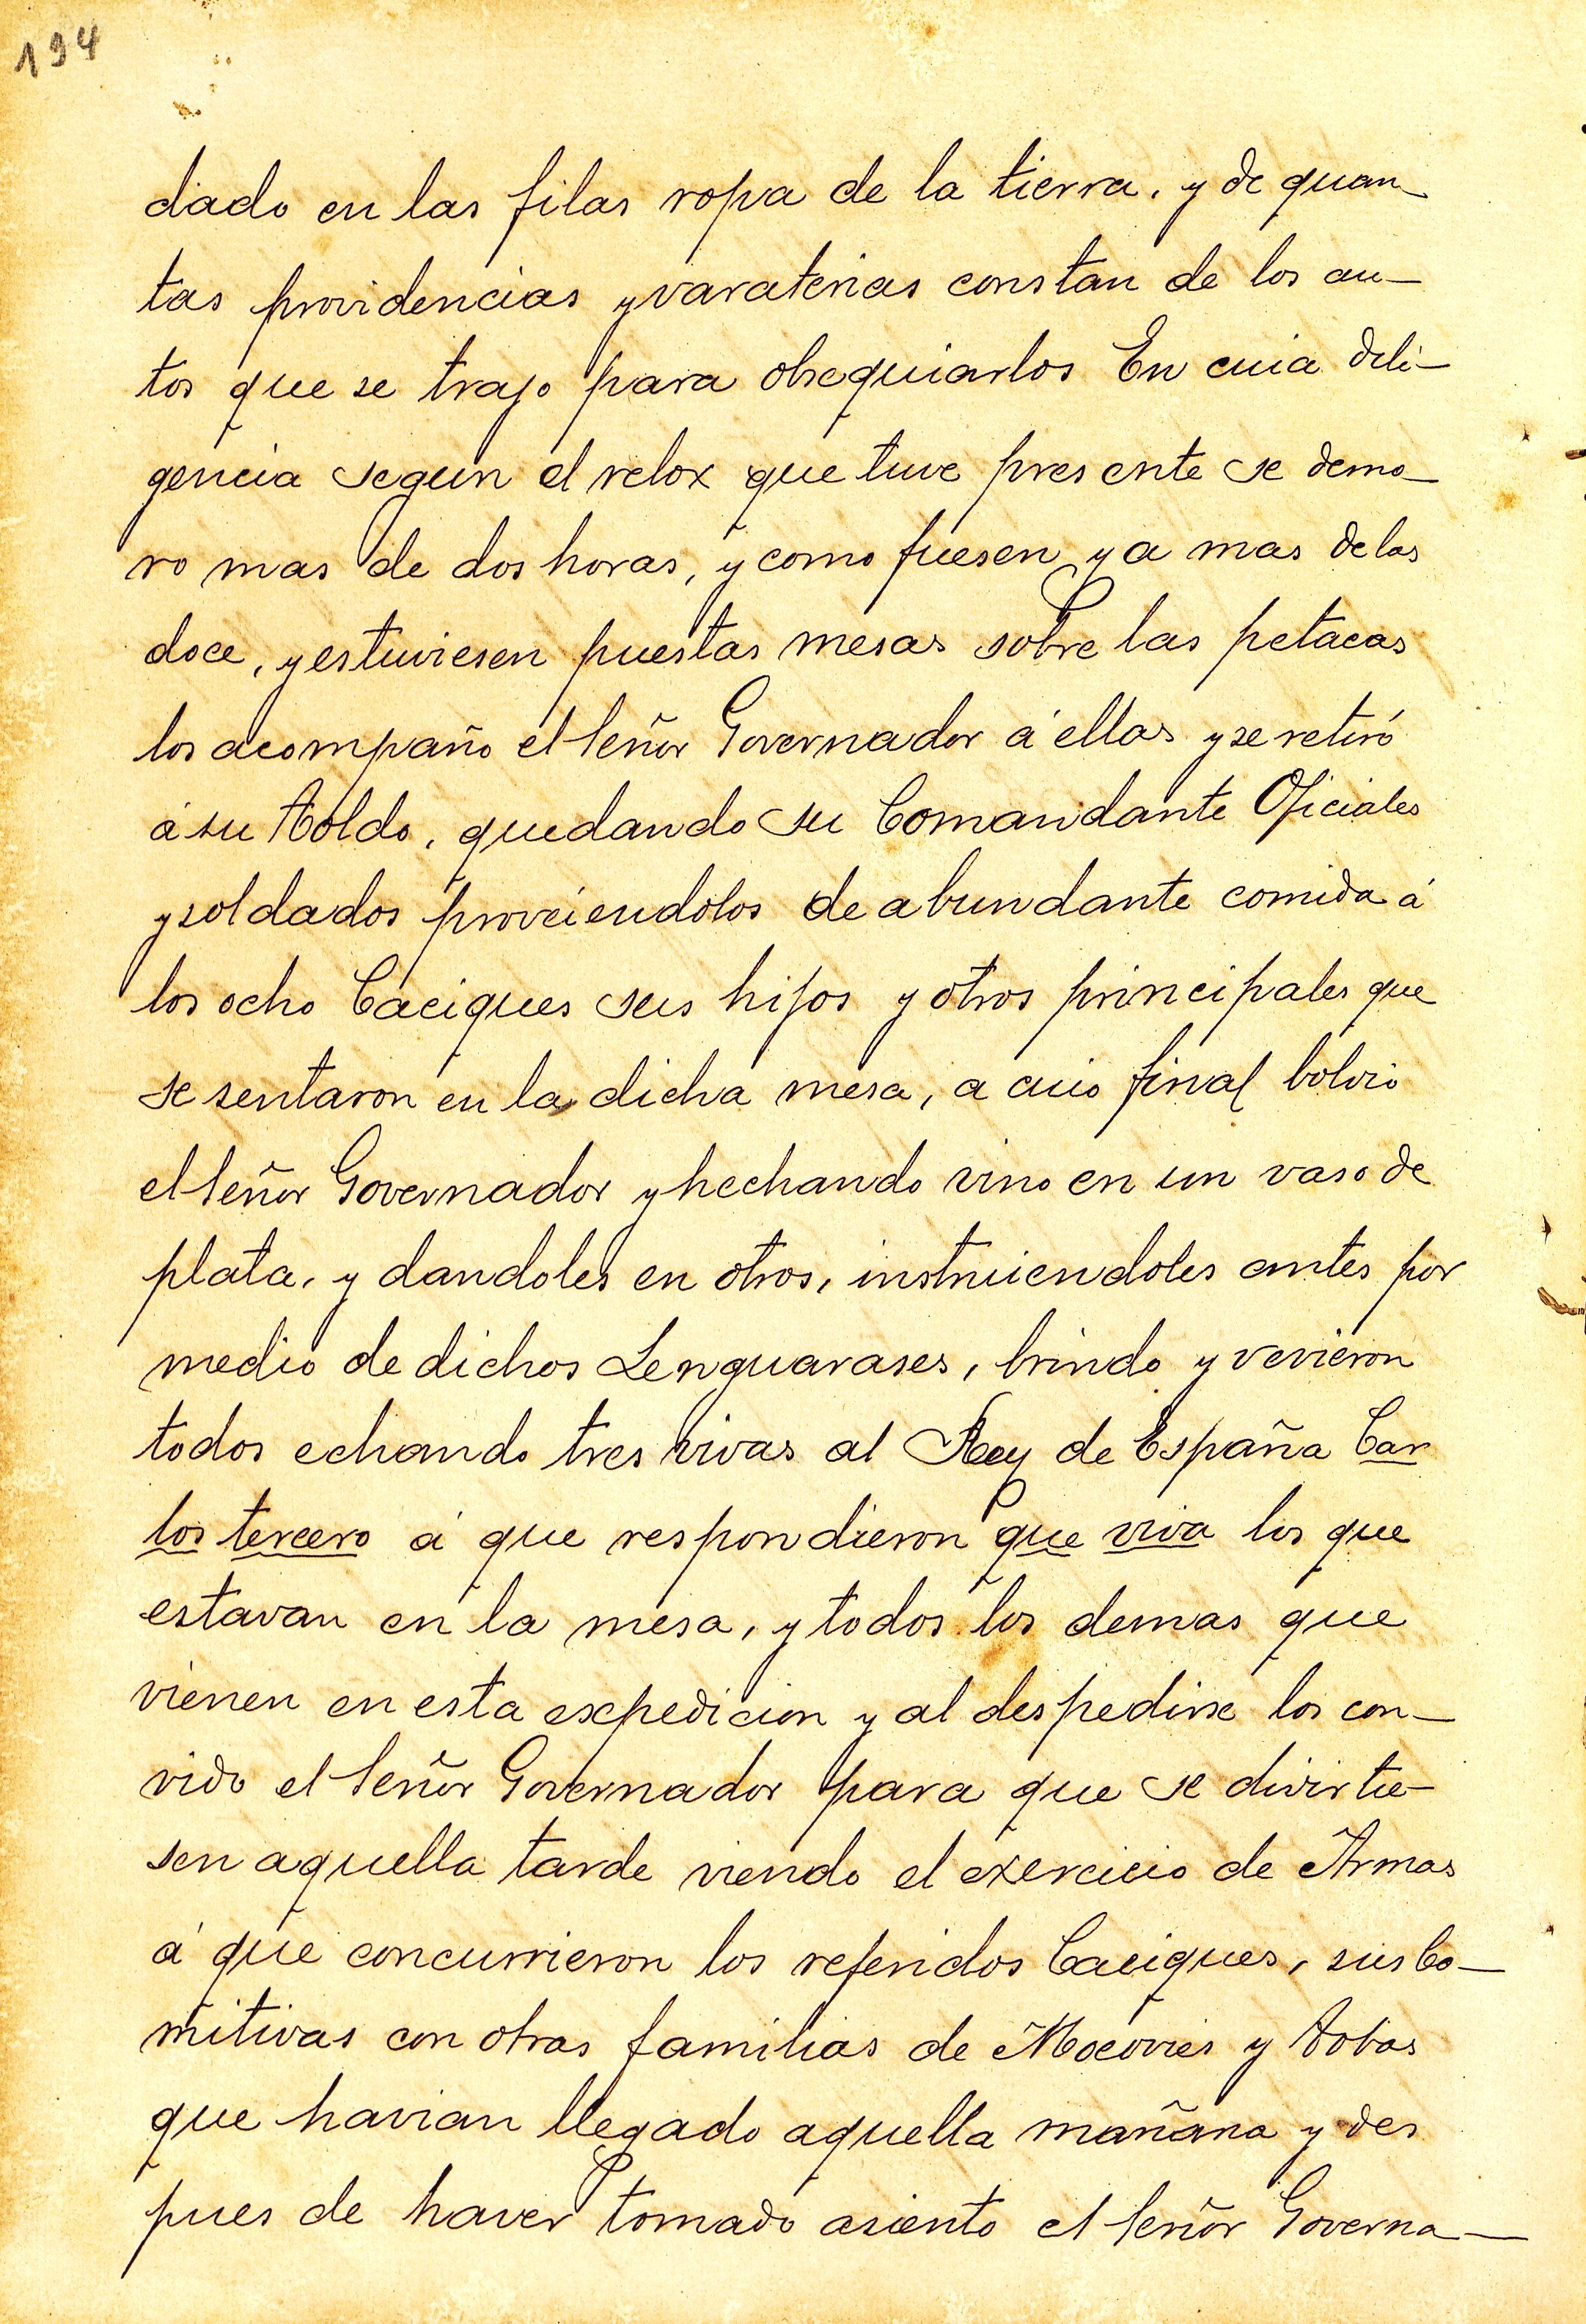 194
dado en las filas ropa de la tierra, y de quan-
tas providencias y varaterias constan de los au-
tos que se trajo para obsequiarlos En cuia dili-
gencia segun el relox que tuve presente se demo-
ro mas de dos horas, y como fuesen ya mas de las
doce, y estuviesen puestas mesas sobre las petacas
los acompaño el Señor Governador á ellas y se retiró
á su Toldo, quedando su Comandante Oficiales
y soldados proveiendolos de abundante comida á
los ocho Caciques sus hijos y otros principales que
se sentaron en la dicha mesa, a cuio final bolvio
el Señor Governador y hechando vino en un vaso de
plata, y dandoles en otros, instruiendoles antes por
medio de dichos Lenguarases, brindo y vevieron
todos echando tres vivas al Rey de España Car
los tercero á que respondieron que viva los que
estavan en la mesa, y todos los demas que
vienen en esta expedicion y al despedirse los con-
vido el Señor Governador para que se divirtie-
sen aquella tarde viendo el exercicio de Armas
á que concurrieron los referidos Caciques, sus Co-
mitivas con otras familias de Mocovies y Tobas
que havian llegado aquella mañana y des
pues de haver tomado asiento el Señor Governa-